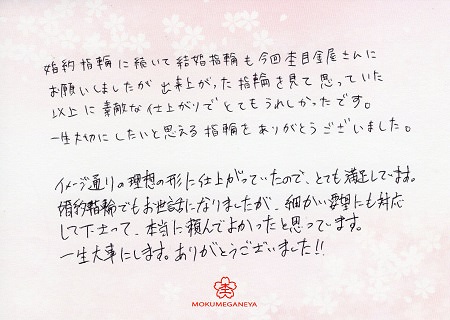 婚約指輪に続いて結婚指輪も今回杢目金屋さんに
お願いしましたが出来上がった指輪を見て思っていた
以上に素敵な仕上がりでとてもうれしかったです。
一生大切にしたいと思える指輪をありがとうございました。
イメージ通りの理想の形に仕上がっていたので、とても満足しています。
婚約指輪でもお世話になりましたが、細かい要望にも対応
して下さって、本当に頼んでよかったと思っています。
一生大事にします。ありがとうございました!!
杢
MOKUMEGANEYA